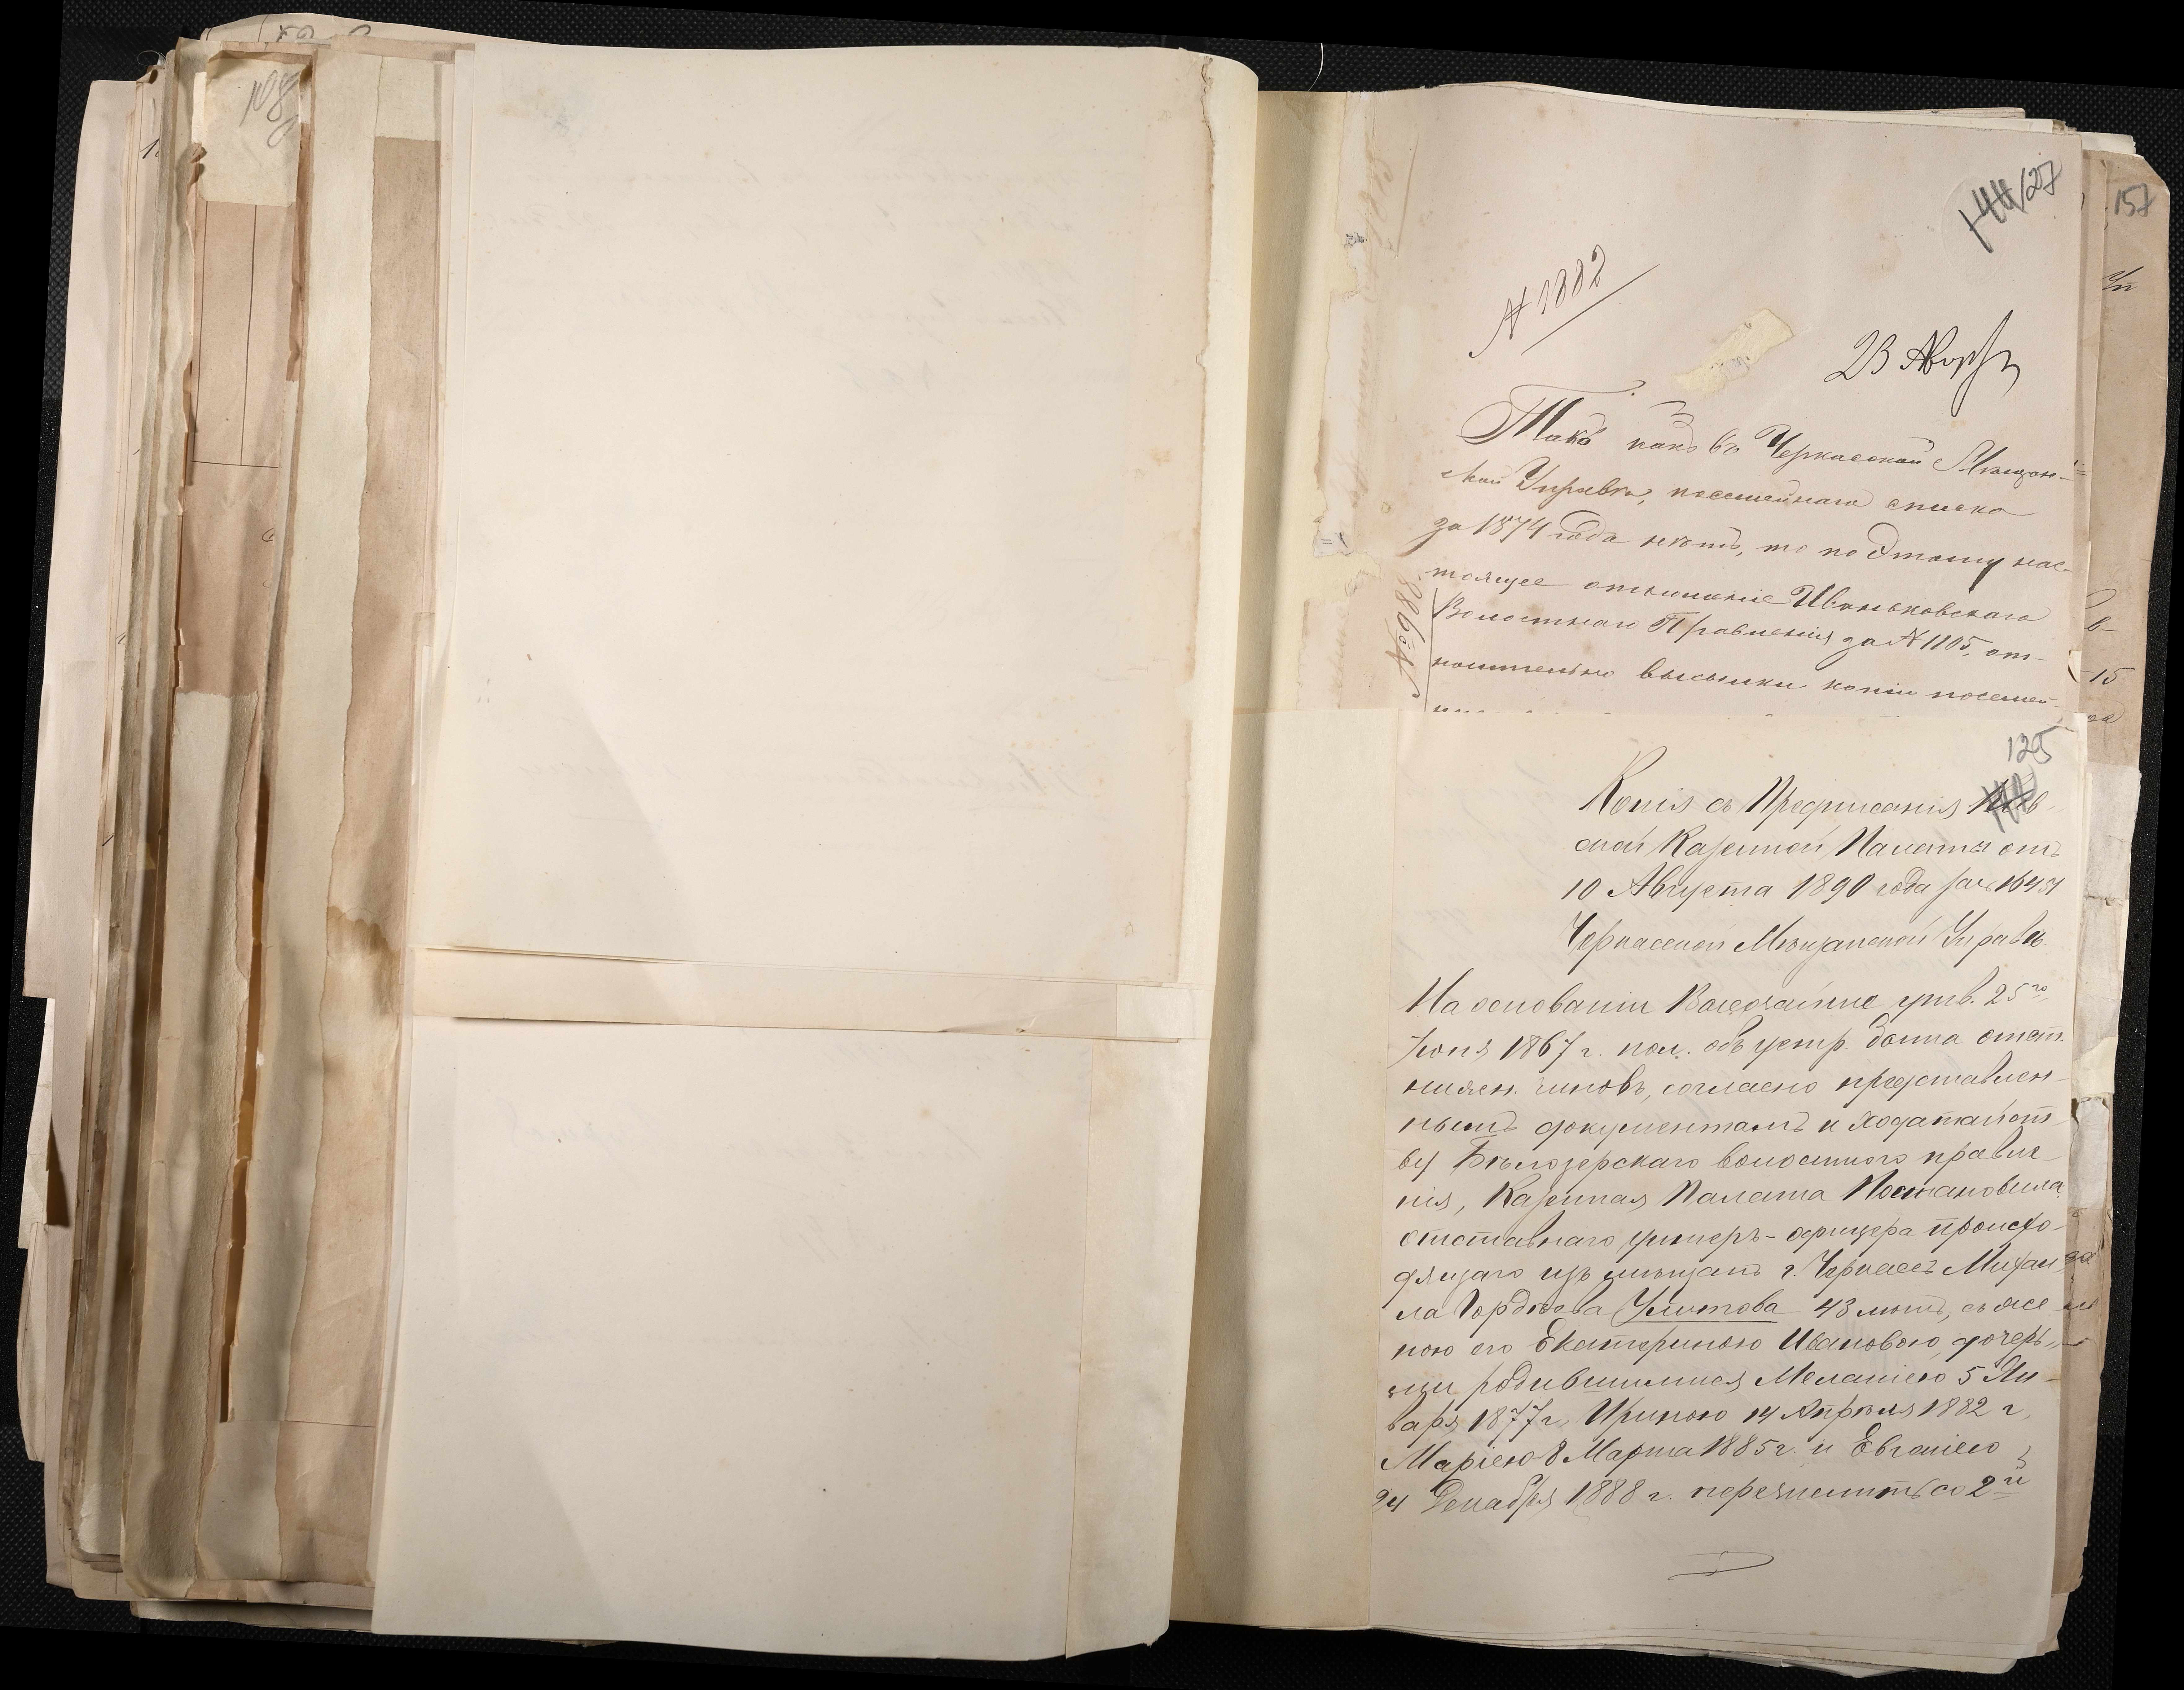 108
144 127
157
№ 1882
23 Авг
Такъ какъ въ Черкасской Мѣщан-
ской Управѣ, посемейнаго списка
за 1874 года нѣтъ, то по этому нас-
тоящее отношеніе Иваньковскаго
Волостнаго Правленія за № 1105, от-
носительно высылки копіи посемей-
125
Копія съ Предписанія Кіев-
ской Казенной Палаты отъ
10 Августа 1890 года за № 16451
Черкасской Мѣщанской Управѣ.
На основаніи Высочайше утв. 25го
Іюня 1867 г. пол. объ устр. быта отст.
нижн. чиновъ, согласно представлен-
нымъ документамъ и ходатайст-
ву Бѣлозерскаго волостного правле-
нія, Казенная Палата Постановила
отставнаго унтеръ-офицера происхо-
дящаго изъ мѣщанъ г. Черкасъ Михаи-
ла Гордѣева Улитова 43 лѣтъ, съ же-
ною его Екатериною Ивановою, дочерь-
ми родившимися Меланіею 5 Ян-
варя 1877 г., Ириною 14 Апрѣля 1882 г,
Маріею 8 Марта 1885 г. и Евгеніею
24 Декабря 1888 г. перечислить со 2й